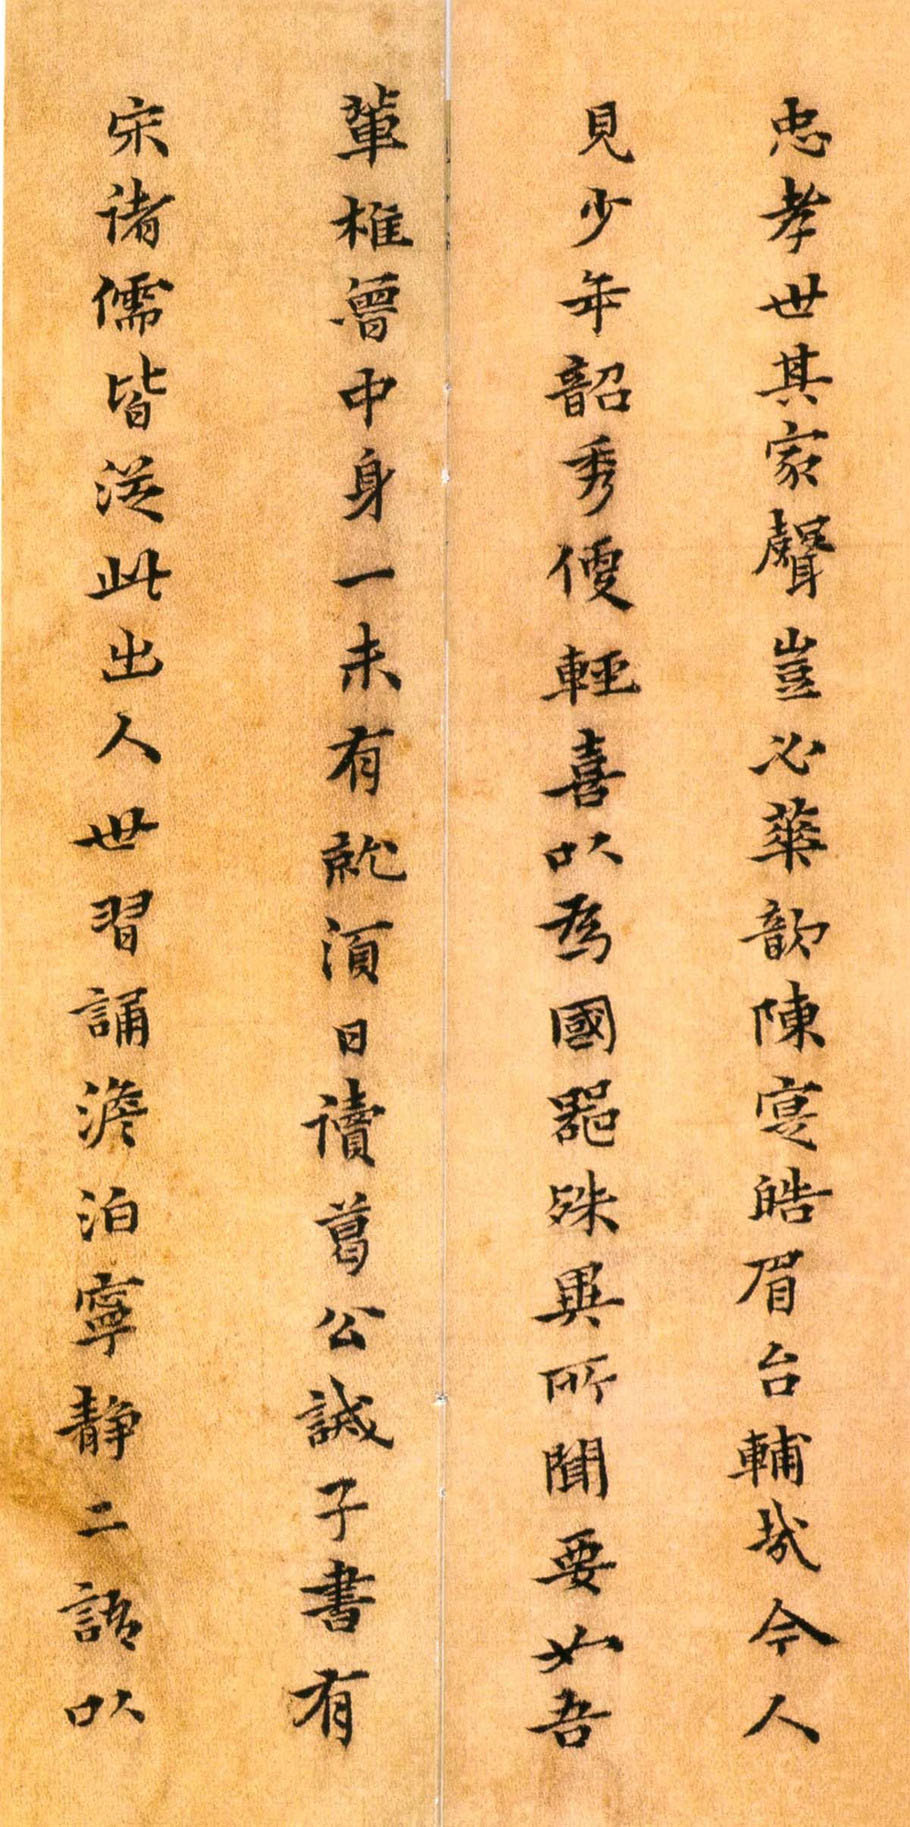 忠孝世其家聲豈必華歆陳寔皓眉台輔哉今人
見少年韶秀便輕喜以為國器殊異所聞要如吾
輩權曾中身一未有就須日讀葛公誡子書有
宋诸儒皆从此出人世習誦澹泊寧靜二語以